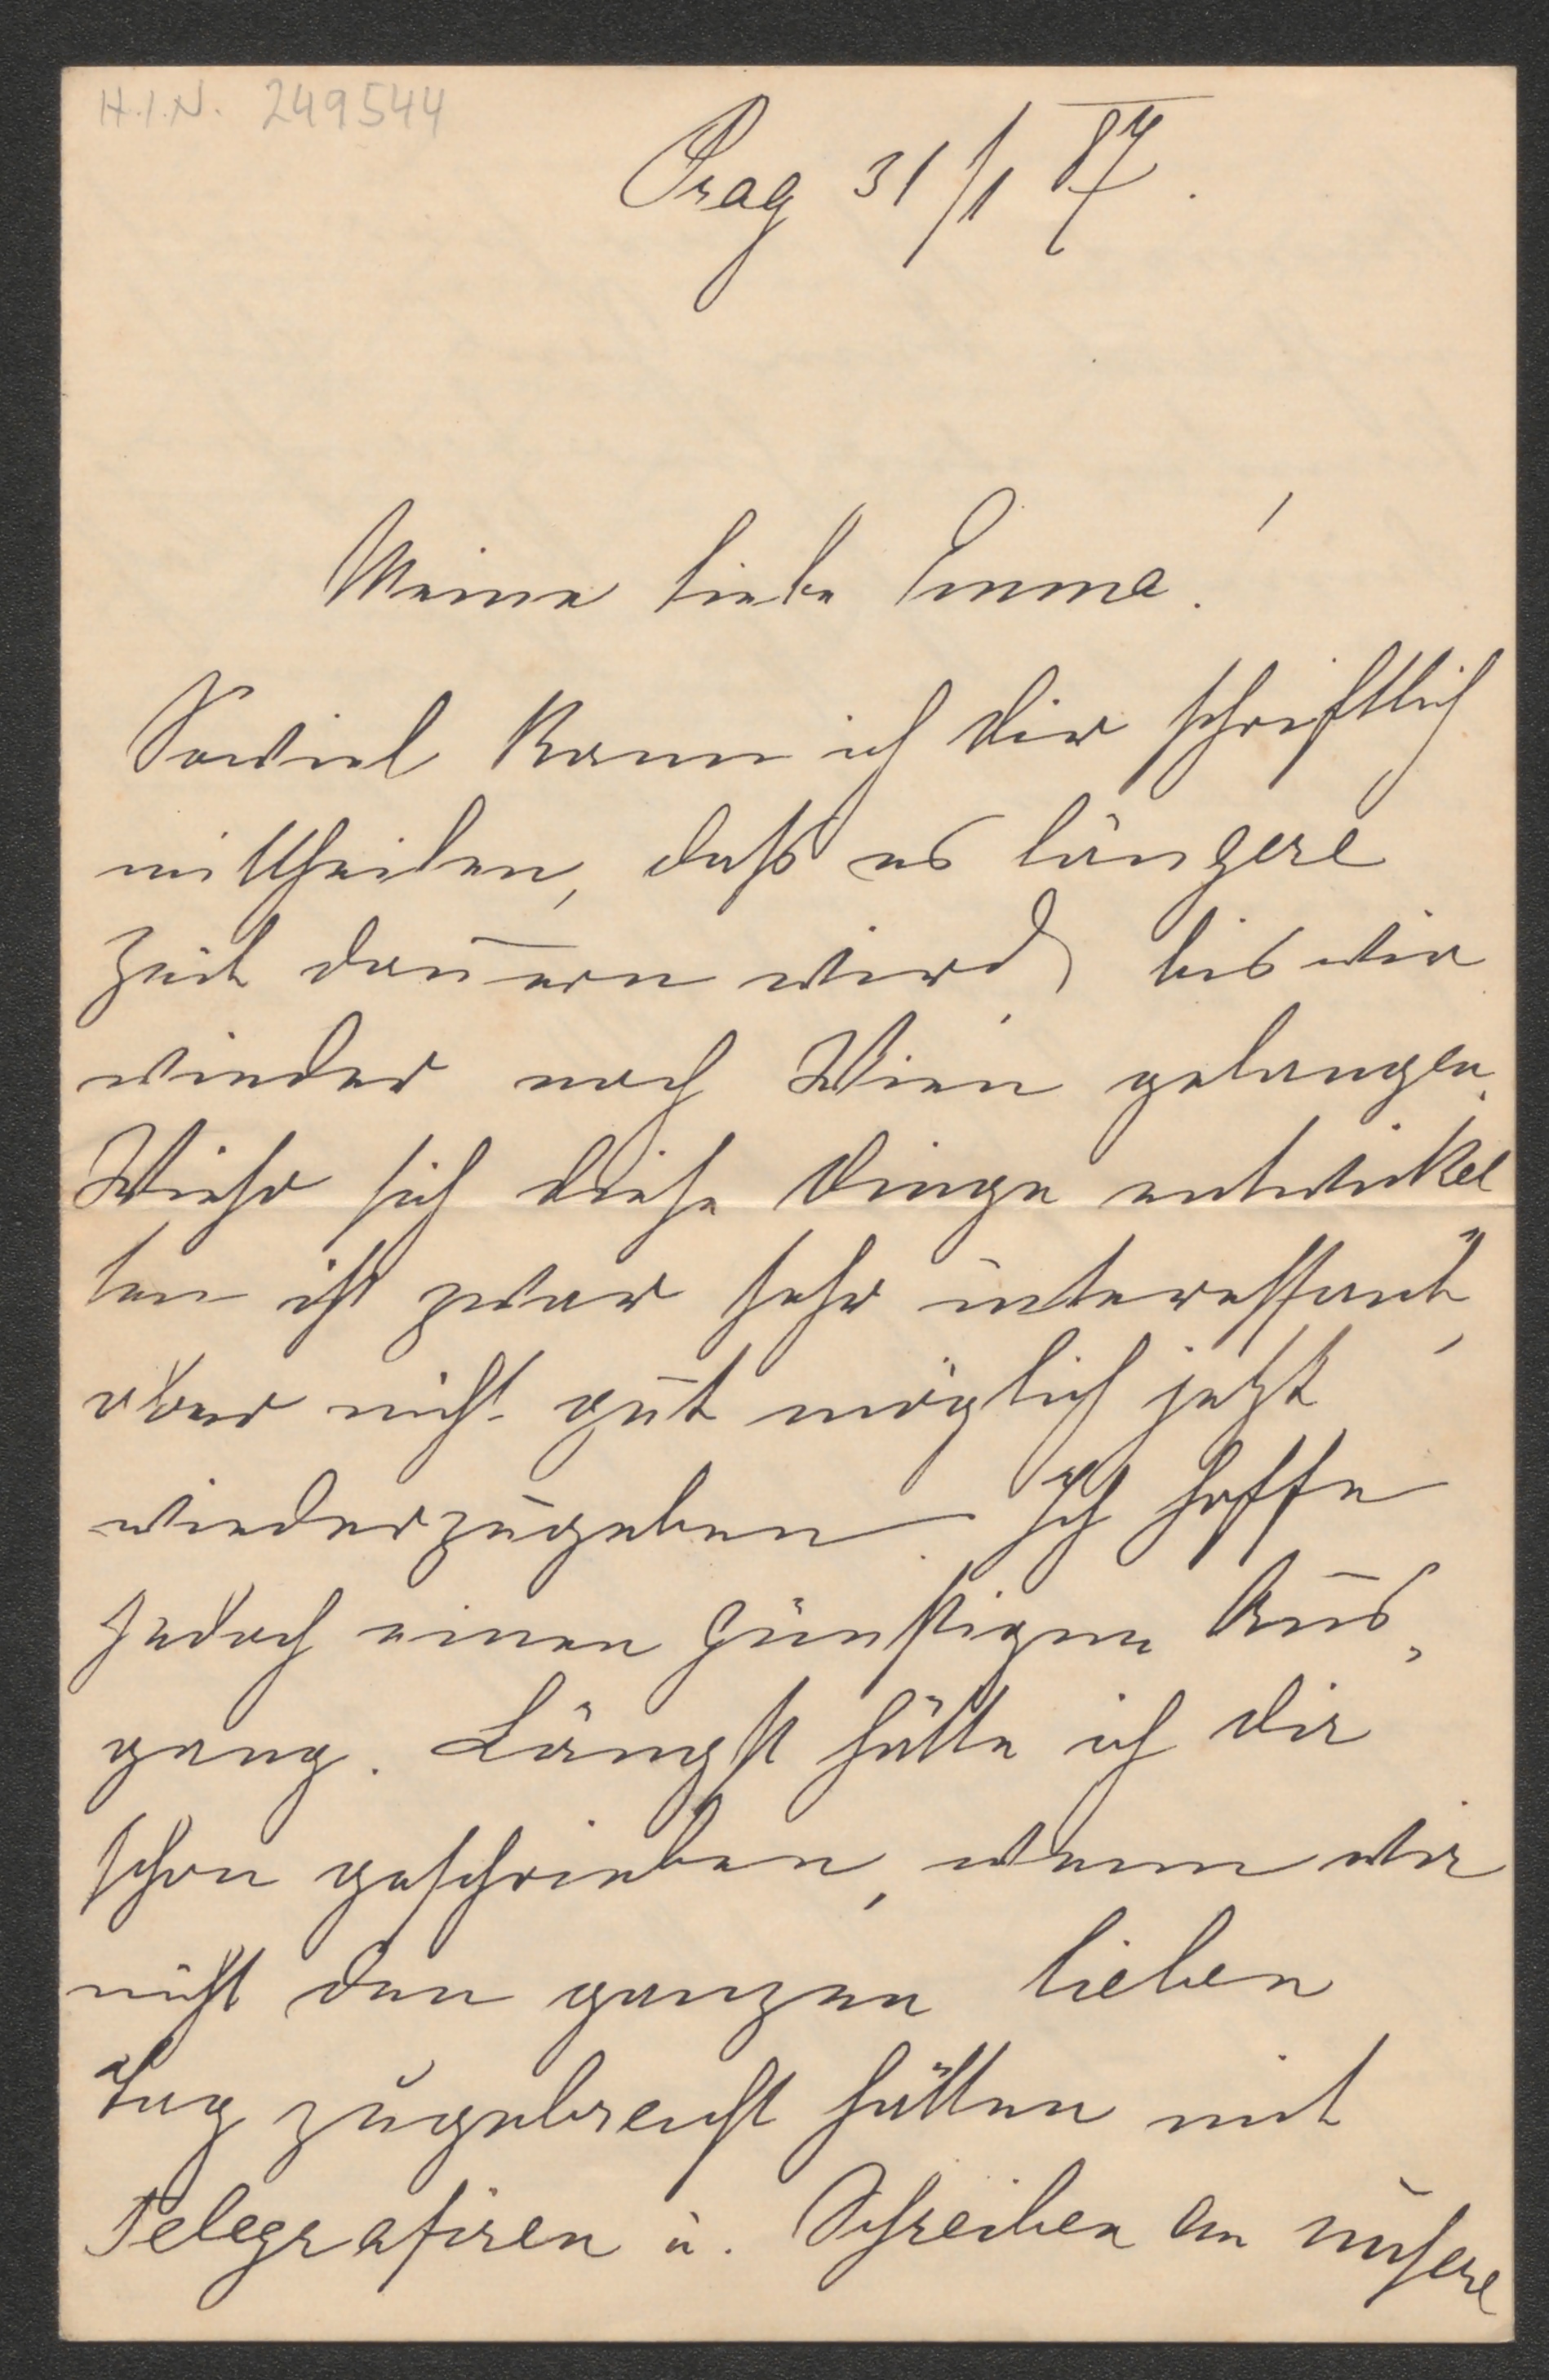 H.I.N. 249544
Prag 31/1 87.
Meine liebe Emma!
Soviel kann ich dir schriftlich
mittheilen, daß es längere
Zeit dauern wird, bis wir
wieder nach Wien gelangen.
Wieso sich diese Dinge entwickel
ten ist zwar sehr interessant,
aber nicht gut möglich jetzt
wiederzugeben. Ich hoffe
jedoch einen günstigen Aus,
gang. Längst hätte ich dir
schon geschrieben, wenn wir
nicht den ganzen lieben
Tag zugebracht hätten mit
Telegrafiren u. Schreiben an unsere